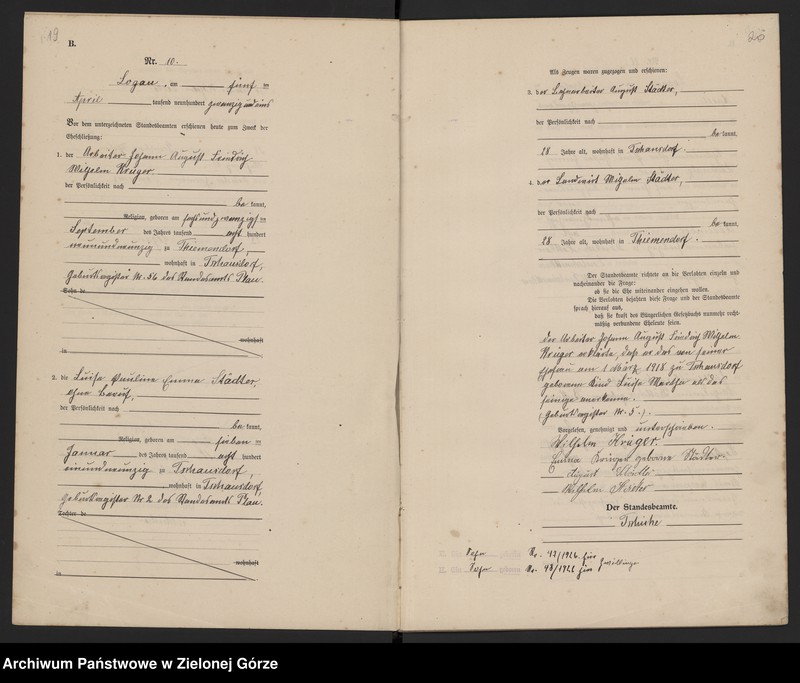 19
B.
Nr. 10.
Logau, am fünf ten
April tausend neunhundert zwanzig und eins
Vor dem unterzeichneten Standesbeamten erschienen heute zum Zweck der
Eheschließung:
1. der Arbeiter Johann August Friedrich
Wilhelm Krüger
der Persönlichkeit nach
be kannt,
Religion, geboren am sechsundzwanzigs ten
September des Jahres tausend acht hundert
neunundneunzig zu Thiemendorf,
wohnhaft in Tschausdorf,
Geburtsregister Nr. 56 des Standesamts Plau.
Sohn de
wohnhaft
in
2. die Luise Pauline Emma Städter,
ohne Beruf,
der Persönlichkeit nach
be kannt,
Religion, geboren am sieben ten
Januar des Jahres tausend acht hundert
einundneunzig zu Tschausdorf,
wohnhaft in Tschausdorf,
Geburtsregister Nr 2 des Standesamts Plau.
Tochter de
wohnhaft
in
Als Zeugen waren zugezogen und erschienen:
3. der August Städter,
der Persönlichkeit nach
be kannt,
28 Jahre alt, wohnhaft in Tschausdorf.
4. der Landwirt Wilhelm Städter,
der Persönlichkeit nach
be kannt,
28 Jahre alt, wohnhaft in Thiemendorf.
Der Standesbeamte richtete an die Verlobten einzeln und
nacheinander die Frage:
ob sie die Ehe miteinander eingehen wollen.
Die Verlobten bejahten diese Frage und der Standesbeamte
sprach hierauf aus,
daß sie kraft des Bürgerlichen Gesetzbuchs nunmehr recht-
mäßig verbundene Eheleute seien.
Der Arbeiter Johann August Friedrich Wilhelm
Krüger erklärte, daß er das von seiner
Ehefrau am 1 März 1918 zu Tschausdorf
geborene Kind Luise Martha als das
seinige anerkenne.
(Geburtsregister Nr. 5.).
Vorgelesen, genehmigt und unterschrieben.
Wilhelm Krüger.
Emma Krüger geborene Städter.
August Städter
Wilhelm
Der Standesbeamte.
Nr. /1926 für
Nr. 48/1926 für Zwillinge
Archiwum Państwowe w Zielonej Górze